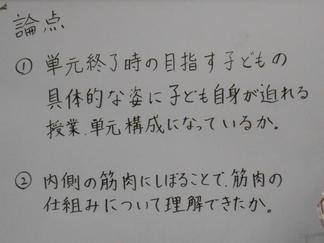 論点
① 単元終了時の目指す子どもの
具体的な姿に子ども自身が迫れる
授業、単元構成になっているか。
② 内側の筋肉にしぼることで、筋肉の
仕組みについて理解できたか。